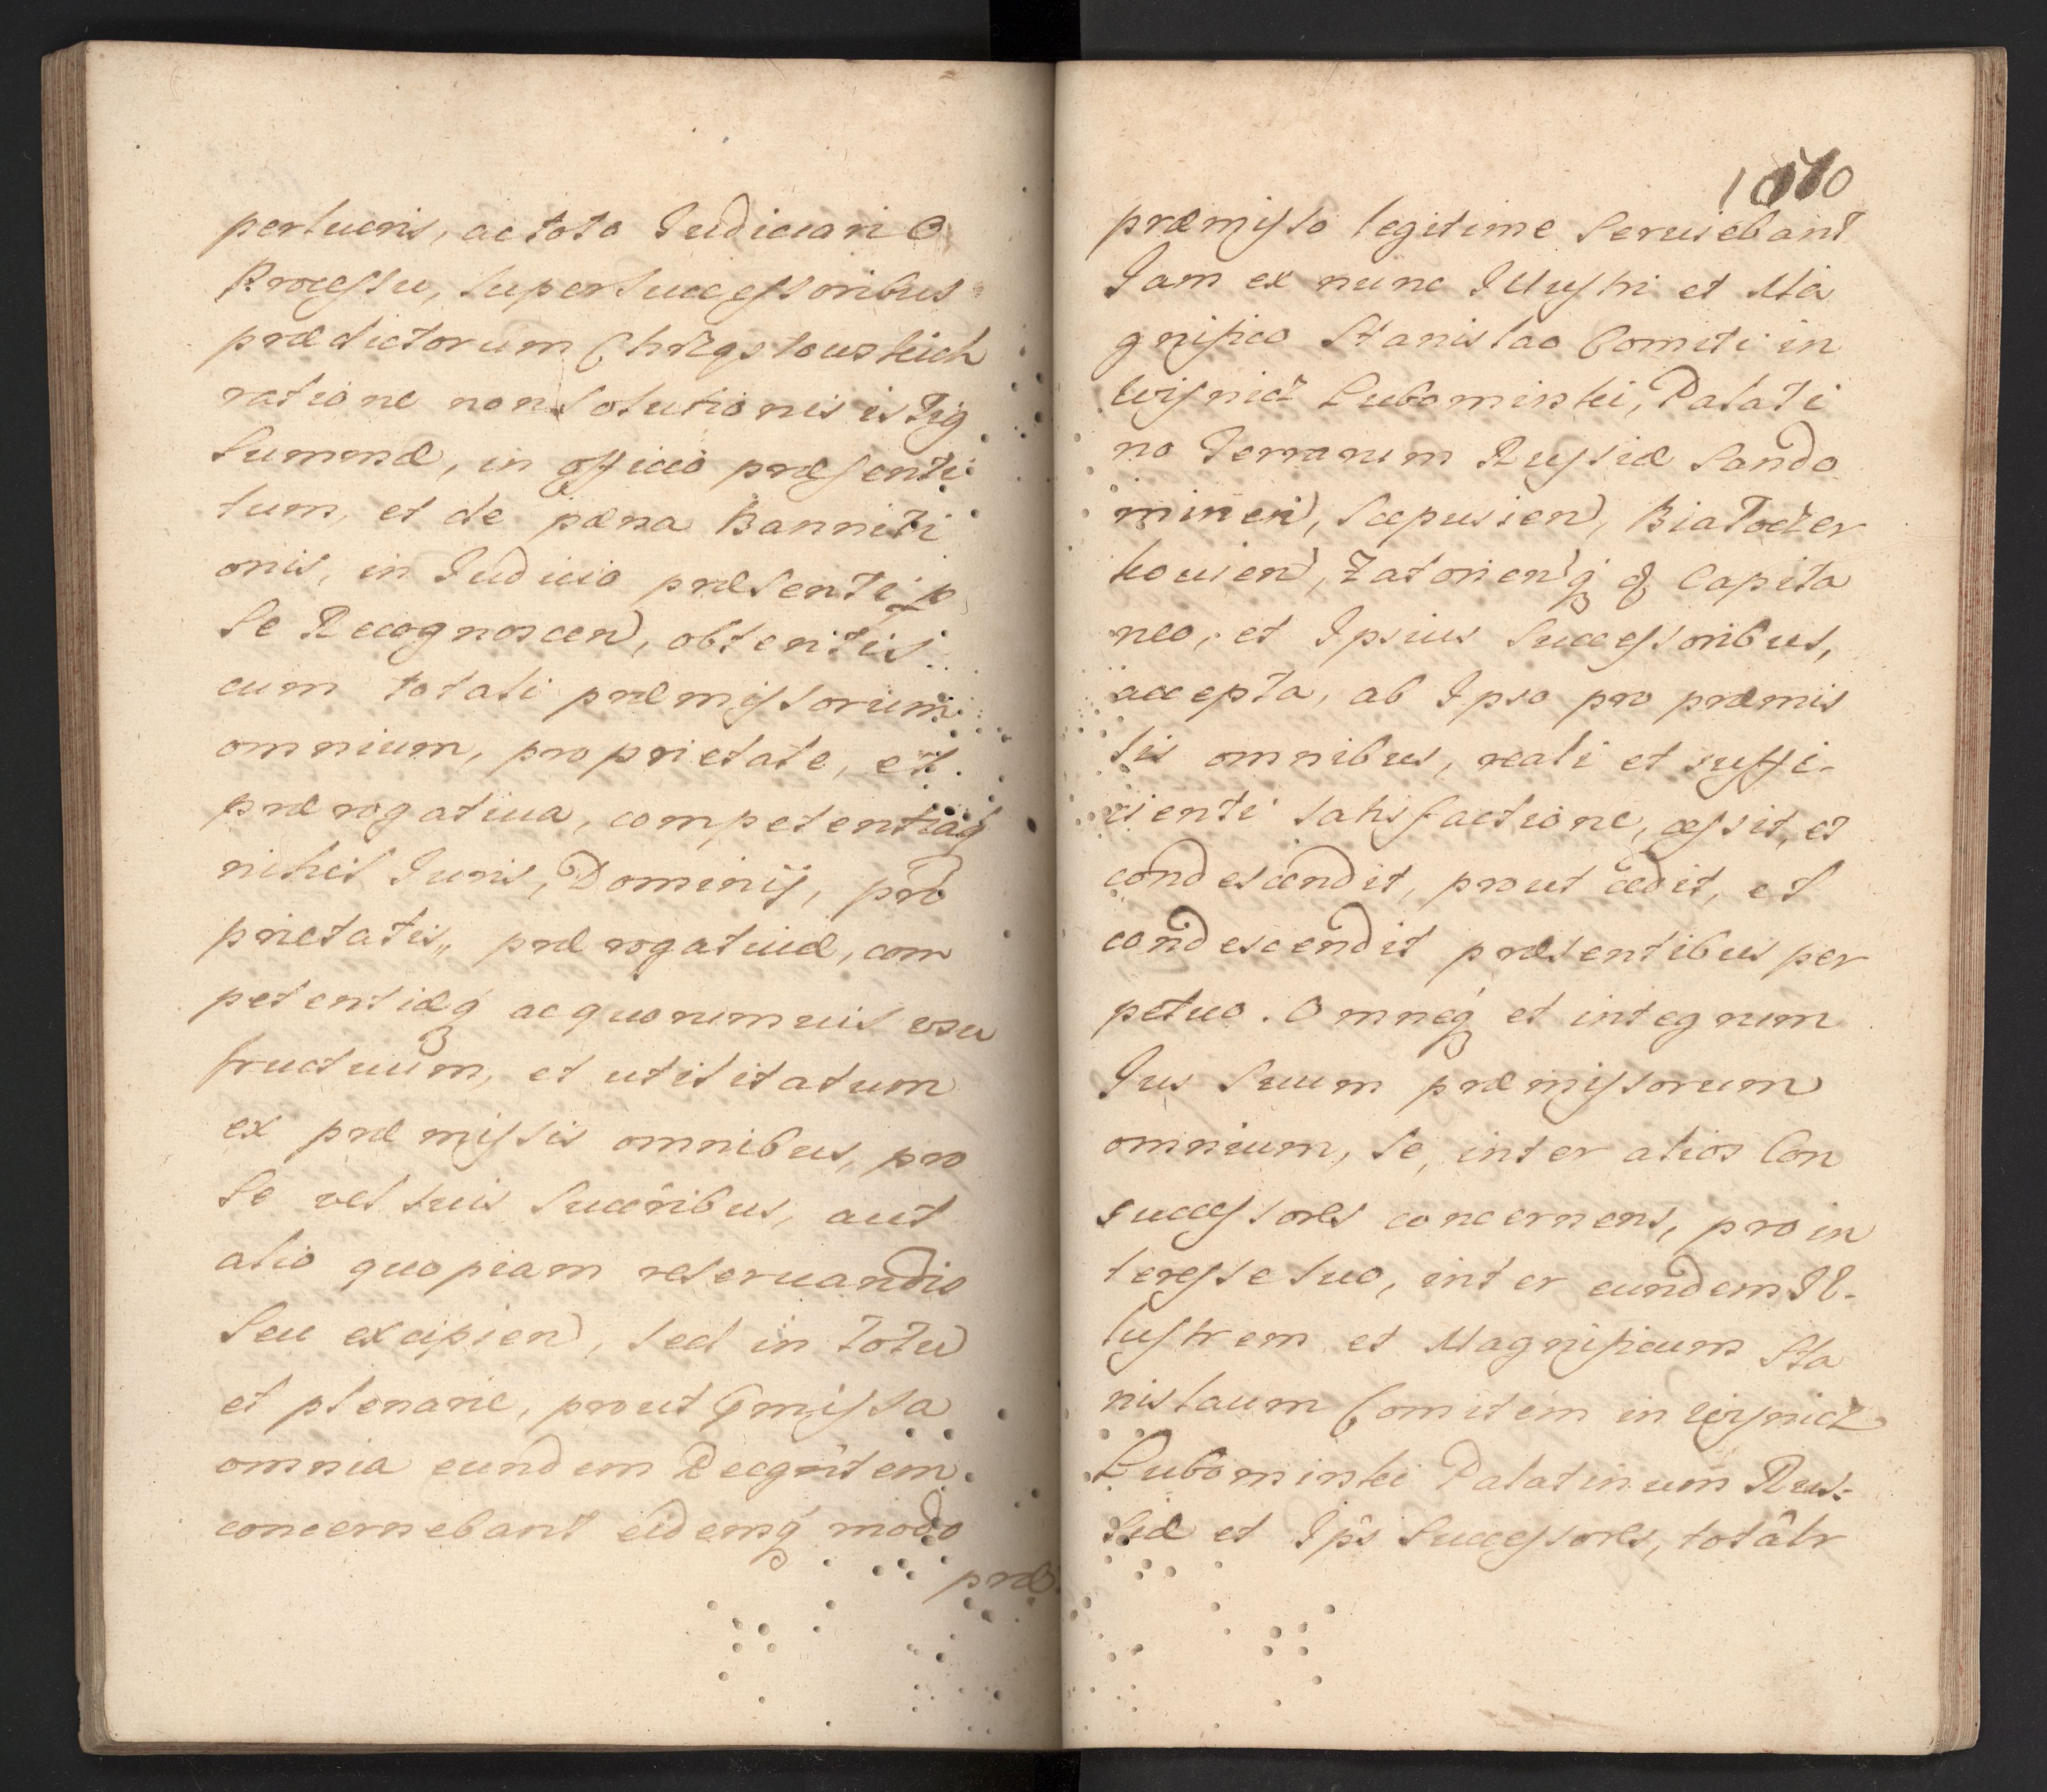 perlucris, ac toto Judiciario
Processu, super Successoribus
prædictorum Chrząstowskich
ratione non Solutionis istig
Summæ, in officio præsenti
tum, et de pœna Banniti
onis, in Judicio præsenti p
Se Recognoscen, obtentis
cum totali præmissorum
omnium, proprietate, et
prærogatiua, competentiaq́
nihil Juris, Dominij, pro
prietatis, prærogatiuæ, com
petentiæq́ ac quorumuis usu
fructuum, et utilitatum
ex præmissis omnibus, pro
Se vel suis Succeribus, aut
alio quopiam reseruando
Seu excipien, sed in totu
et plenarie, prout pmissa
omnia eundem Recgntem
concernebant eidemq́ modo
præ
1010
præmisso legitime Seruiebant
Jam ex nunc Illustri et Ma
gnifico Stanislao Comiti in
Wisnicz Lubomirski, Palati
no Terrarum Russiæ Sando
mirien, Scepusien, Białocer
kouien, Zatorienq́ & Capita
neo, et Ipsius Successoribus,
accepta, ab Ipso pro præmis
sis omnibus, reali et suffi-
cienti satisfactione, cessit, et
condescendit, prout cedit, et
condescendit præsentibus per
petuo. Omneq́ et integrum
Jus Suum præmissorum
omnium, Se, inter alios Con
successores concernens, pro in
teresse suo, inter eundem Il-
lustrem et Magnificum Sta
nislaum Comitem in Wisnicz
Lubomirski Palatinum Rus-
siæ et Ips Successores, totâlr